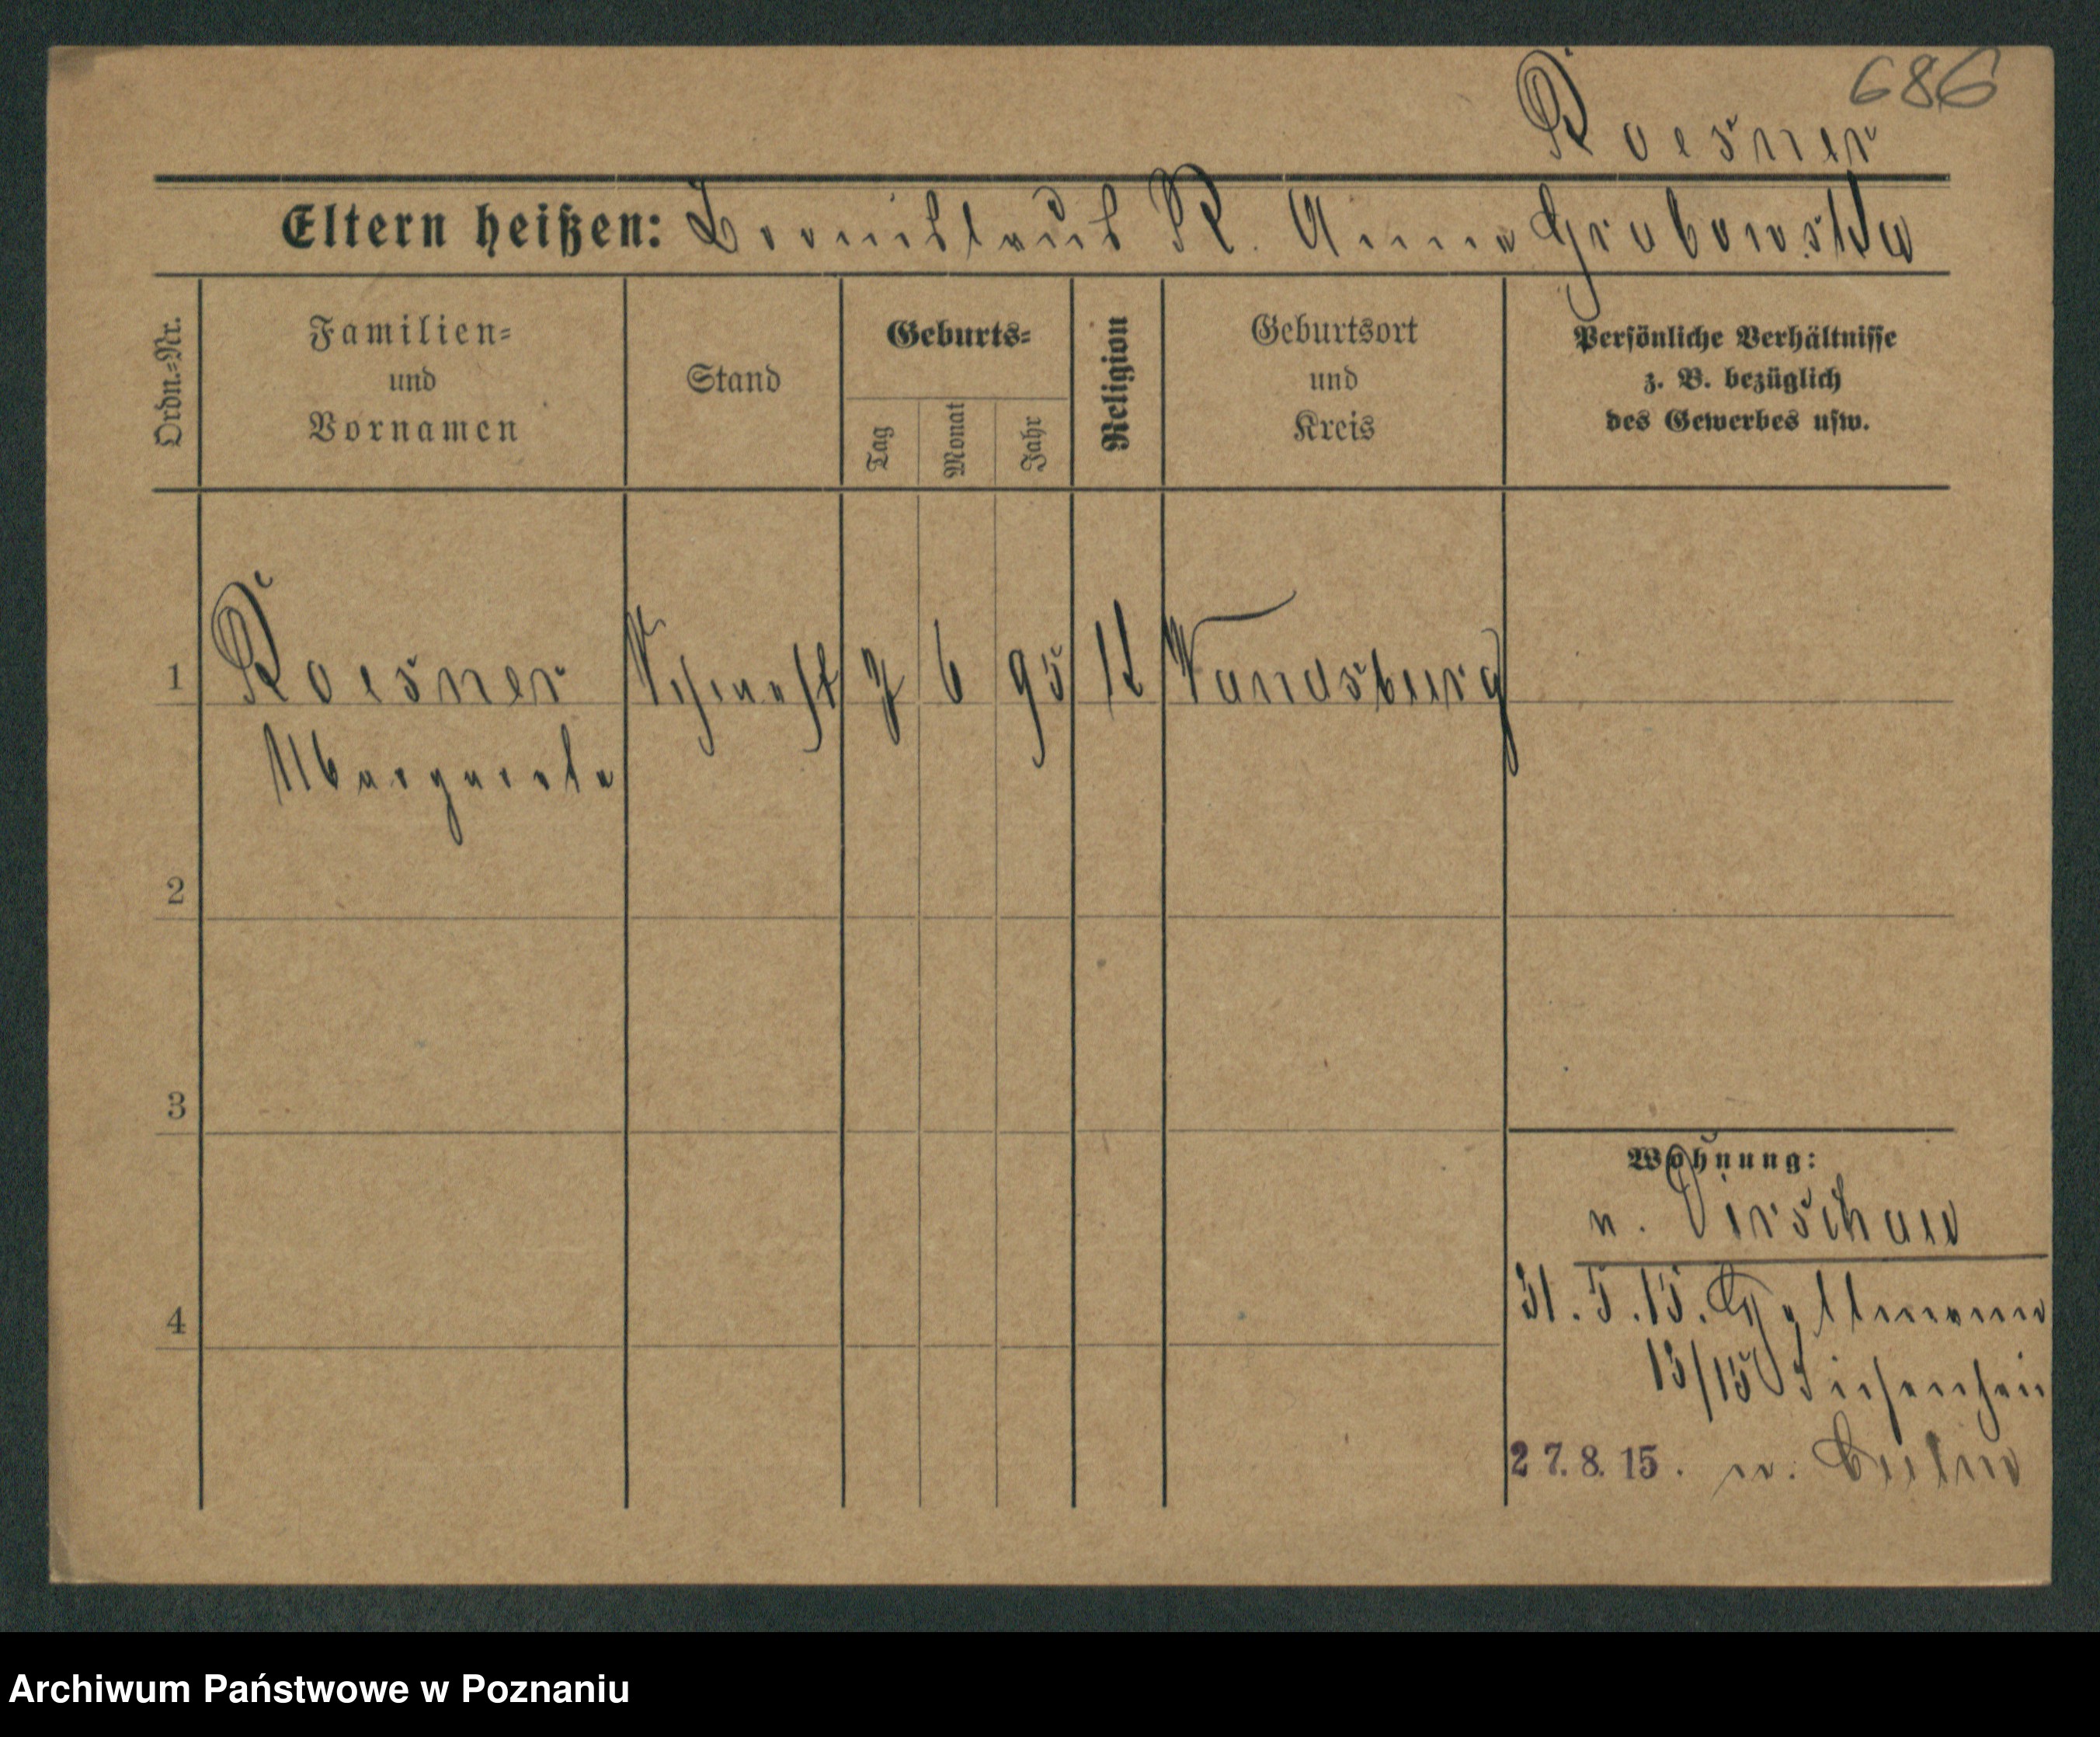 686
Roesner
Eltern heißen: Bronislaus R. Anna Grabowska
Ordn.-Nr.
Familien-
und
Vornamen
Stand
Geburts-
Tag
Monat
Jahr
Religion
Geburtsort
und
Kreis
Persönliche Verhältnisse
z. B. bezüglich
des Gewerbes usw.
1 Roesner 7 6 95 Vandsburg
Margarete
2
3
Wohnung:
n. Dirschau
31. 5. 15.
4
13/15
27. 8. 15. n. Culm
Archiwum Państwowe w Poznaniu